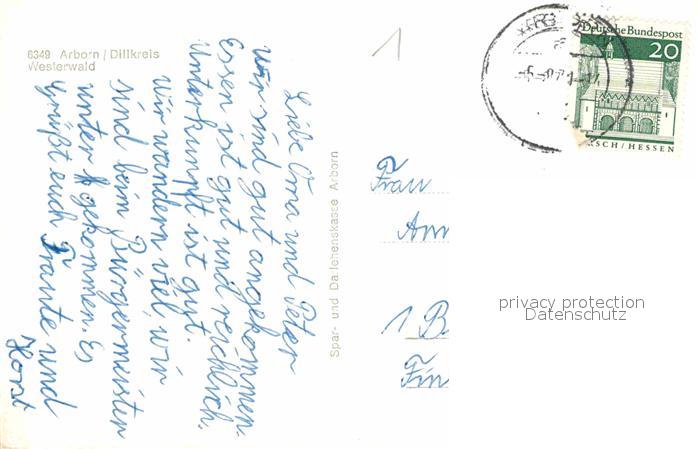 6349 Arborn / Dillkreis
Westerwald
Liebe Oma und Peter
Wir sind gut angekommen.
Essen ist gut und reichlich.
Unterkunft ist gut.
Wir wandern viel, wir
sind beim Bürgermeister
unter gekommen. Es
grüßt euch Traute und
Horst
Spar- und Darlehenskasse Arborn
1
Deutsche Bundespost
20
RSCH / HESSEN
Frau
Ann
1 B
Fin
privacy protection
Datenschutz